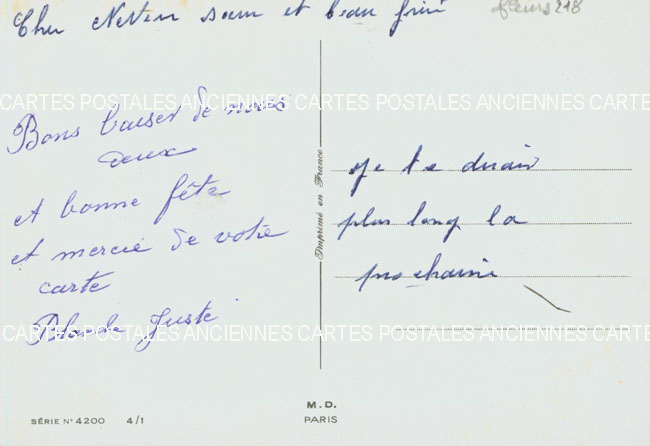 Cher Neveu sœur et beau frère
fleurs 218
CARTES POSTALES ANCIENNES CARTES POSTALES ANCIENNES CARTE
Bons baiser de nous
deux
et bonne fête
et mercie de votre
carte
Juste
Imprimé en France
Je te
plus long la
prochaine
CARTES POSTALES ANCIENNES CARTES POSTALES ANCIENNES CARTE
M.D.
PARIS
SÉRIE N° 4200 4/1